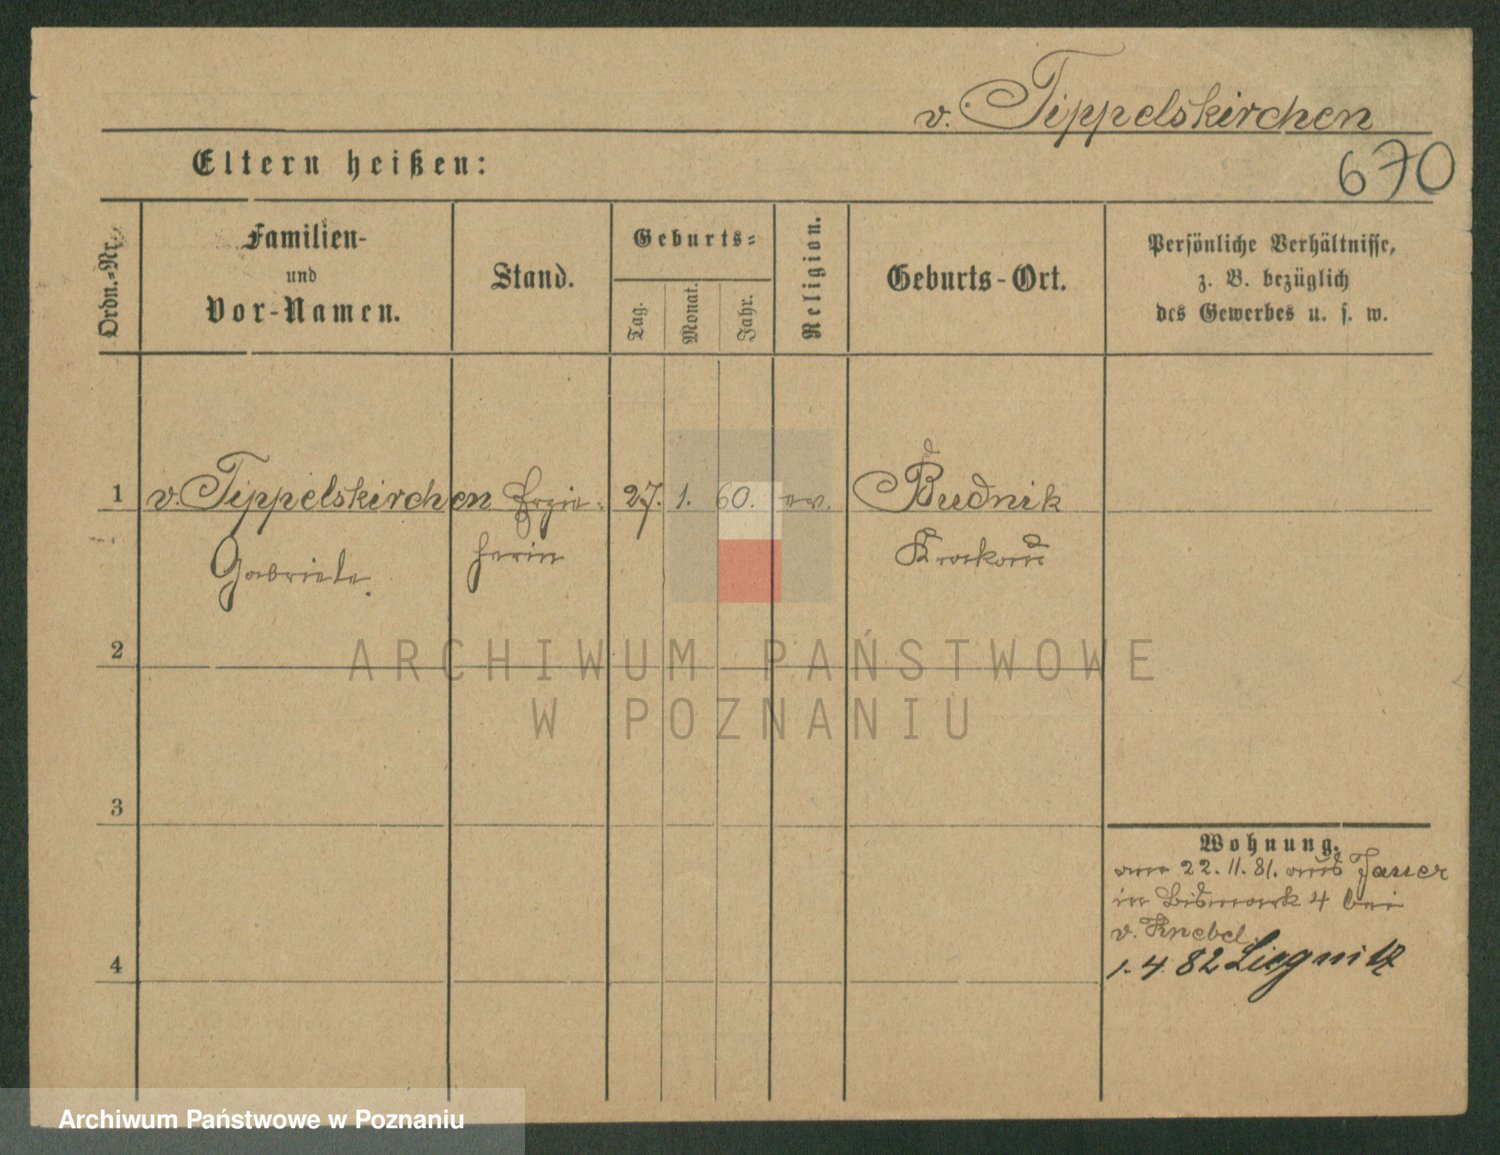 v. Tippelskirchen
Eltern heißen:
670
Ordn.-Nr.
Familien-
und
Vor-Namen.
Stand.
Geburts-
Tag.
Monat.
Jahr.
Religion.
Geburts-Ort.
Persönliche Verhältnisse,
z. B. bezüglich
des Gewerbes u. s. w.
1 v. Tippelskirchen Erzie- 27. 1. 60. ev. Budnik
Gabriele. herin Krakau
2
ARCHIWUM PAŃSTWOWE
W POZNANIU
3
Wohnung.
am 22. 11. 81. aus Jauer
in Bismark 4 bei
v. Knebel.
4 1. 4. 82 Liegnitz
Archiwum Państwowe w Poznaniu